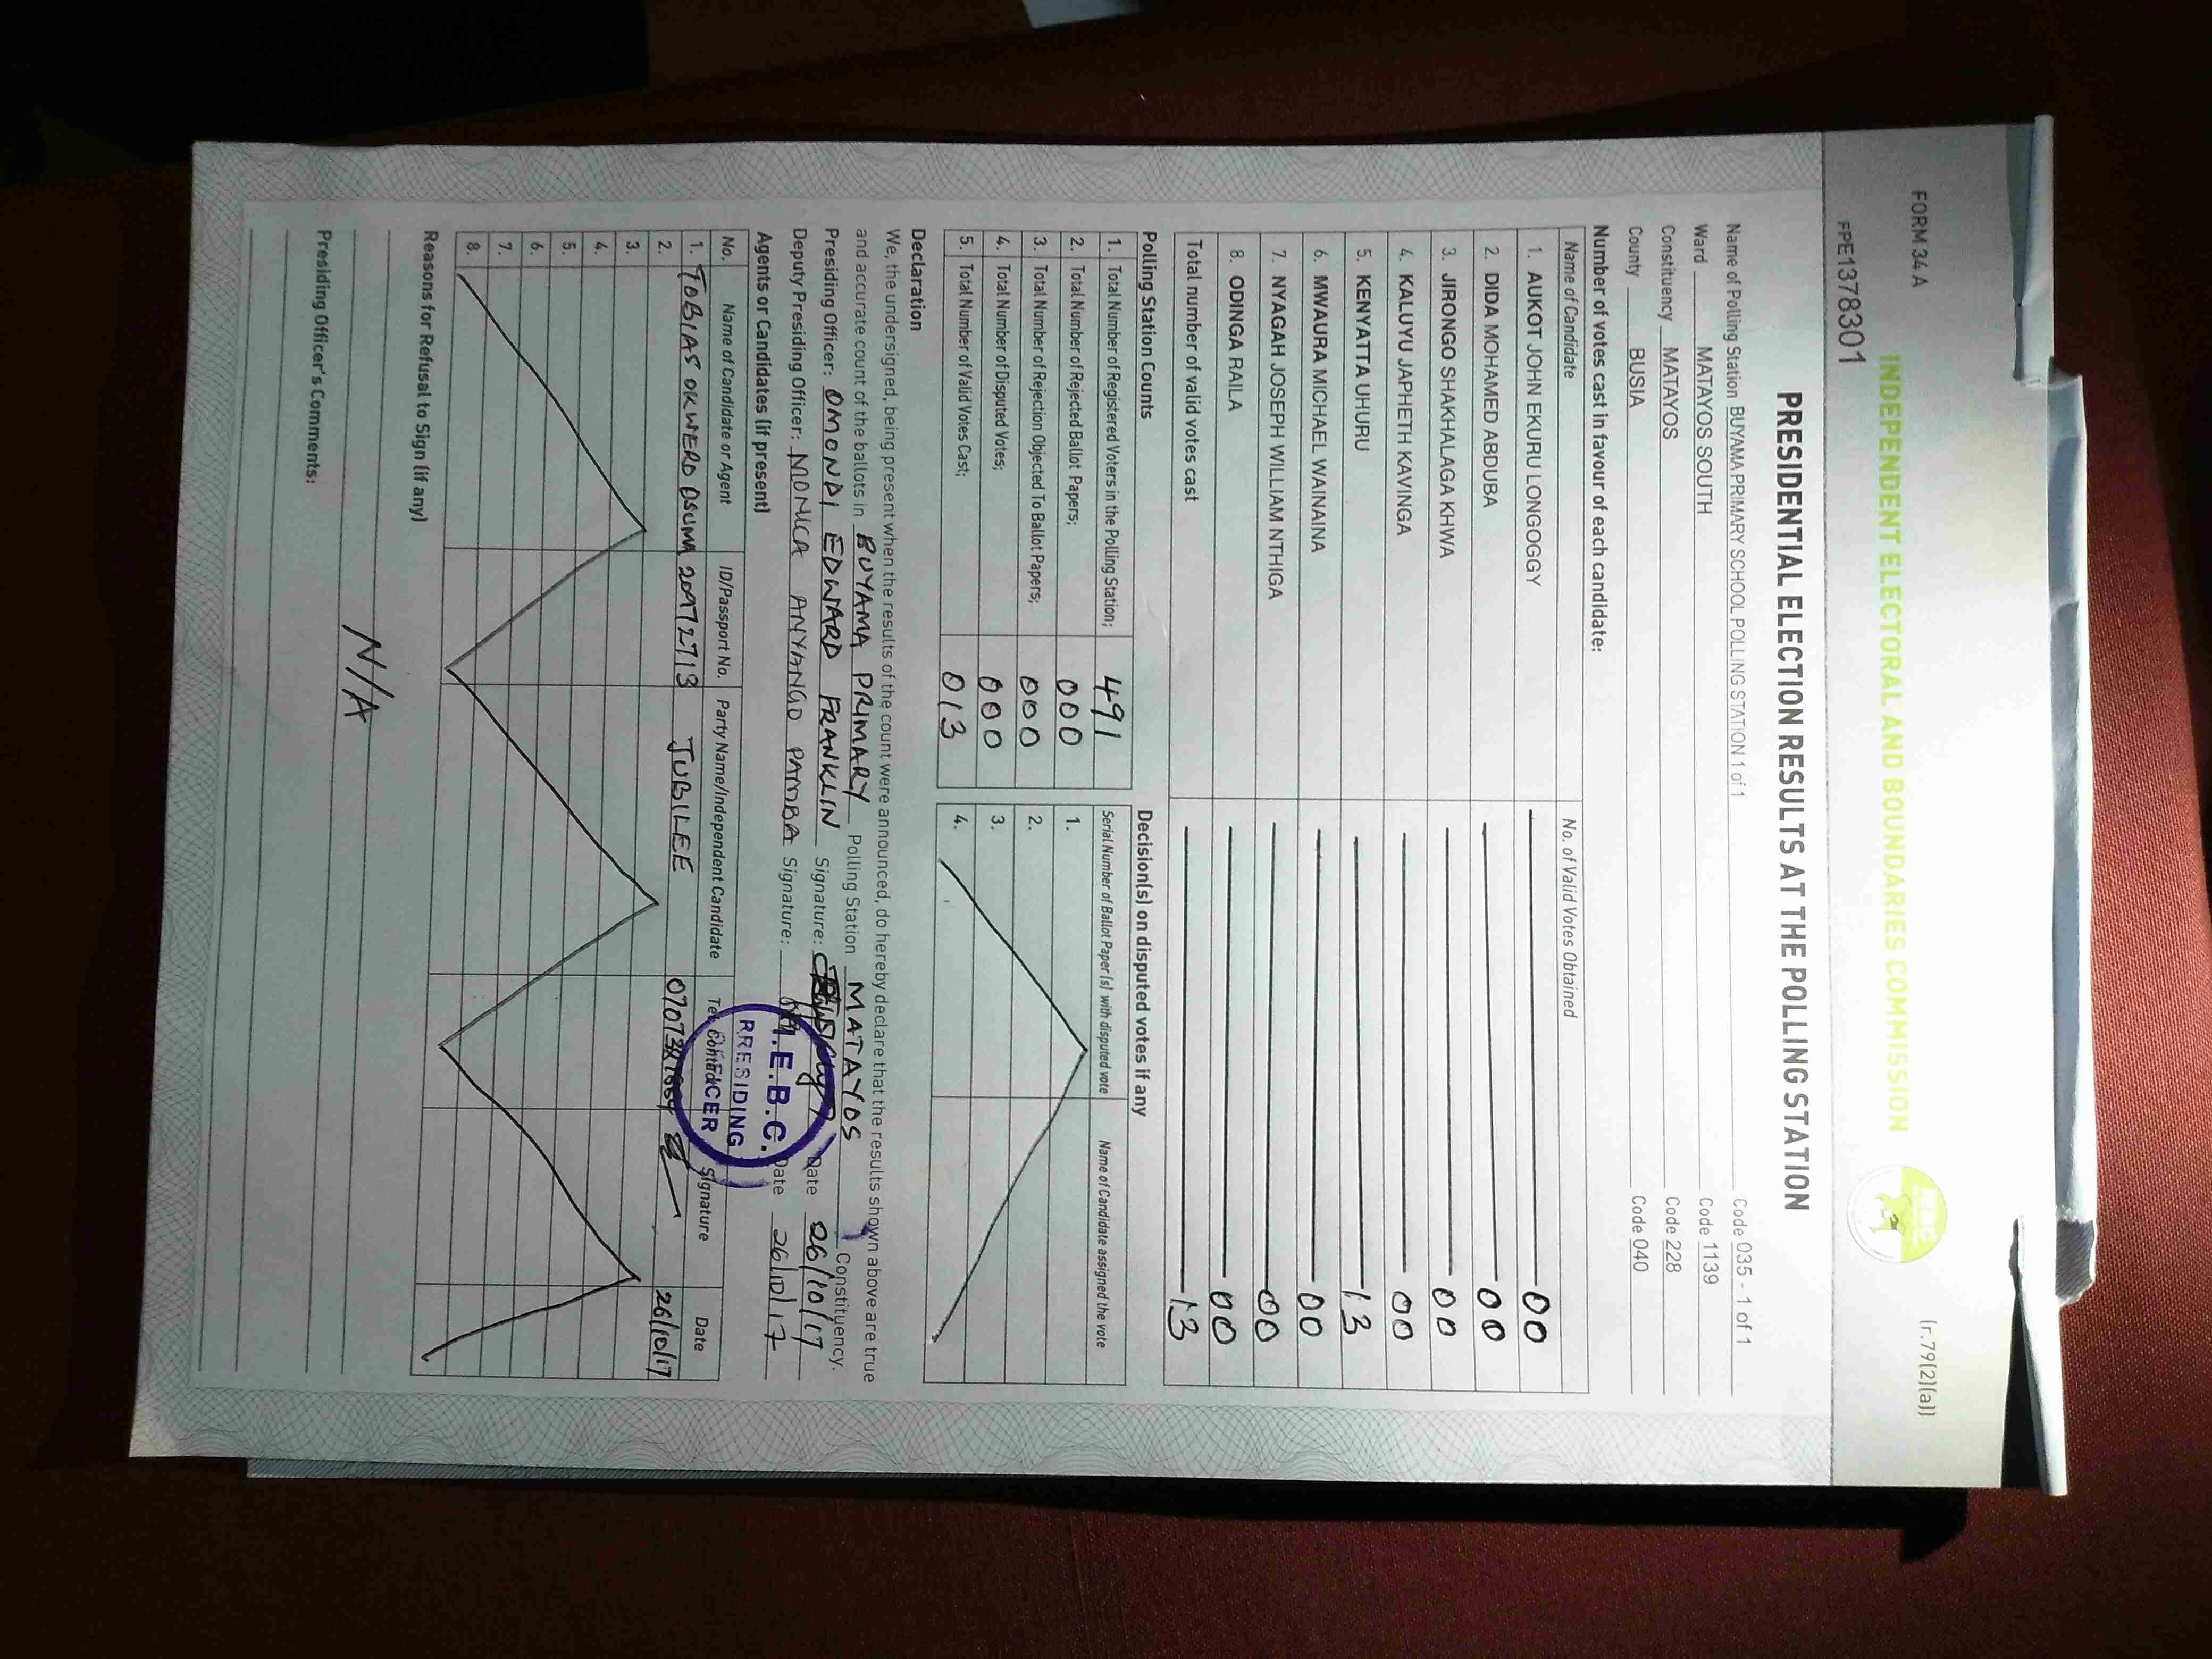 FORM 34 A
(r.79(2)(a))
INDEPENDENT ELECTORAL AND BOUNDARIES COMMISSION
IEBC
FPE1378301
PRESIDENTIAL ELECTION RESULTS AT THE POLLING STATION
Name of Polling Station BUYAMA PRIMARY SCHOOL POLLING STATION 1 of 1 Code 035 - 1 of 1
Ward MATAYOS SOUTH Code 1139
Constituency MATAYOS Code 228
County BUSIA Code 040
Number of votes cast in favour of each candidate:
Name of Candidate No. of Valid Votes Obtained
1. AUKOT JOHN EKURU LONGOGGY 00
2. DIDA MOHAMED ABDUBA 00
3. JIRONGO SHAKHALAGA KHWA 00
4. KALUYU JAPHETH KAVINGA 00
5. KENYATTA UHURU 13
6. MWAURA MICHAEL WAINAINA 00
7. NYAGAH JOSEPH WILLIAM NTHIGA 00
8. ODINGA RAILA 00
Total number of valid votes cast 13
Polling Station Counts
1. Total Number of Registered Voters in the Polling Station; 491
2. Total Number of Rejected Ballot Papers; 000
3. Total Number of Rejection Objected To Ballot Papers; 000
4. Total Number of Disputed Votes; 000
5. Total Number of Valid Votes Cast; 013
Decision(s) on disputed votes if any
Serial Number of Ballot Paper(s) with disputed vote Name of Candidate assigned the vote
1.
2.
3.
4.
Declaration
We, the undersigned, being present when the results of the count were announced, do hereby declare that the results shown above are true
and accurate count of the ballots in BUYAMA PRIMARY Polling Station MATAYOS Constituency.
Presiding Officer: OMONDI EDWARD FRANKLIN Signature: Date 26/10/17
Deputy Presiding Officer: MONICA ANYANGO PAMBA Signature: Date 26/10/17
I.E.B.C.
PRESIDING
OFFICER
Agents or Candidates (if present)
No. Name of Candidate or Agent ID/Passport No. Party Name/Independent Candidate Tel. Contact Signature Date
1. TOBIAS OKWERO OSUMA 20972713 JUBILEE 26/10/17
2.
3.
4.
5.
6.
7.
8.
Reasons for Refusal to Sign (if any)
N/A
Presiding Officer's Comments: